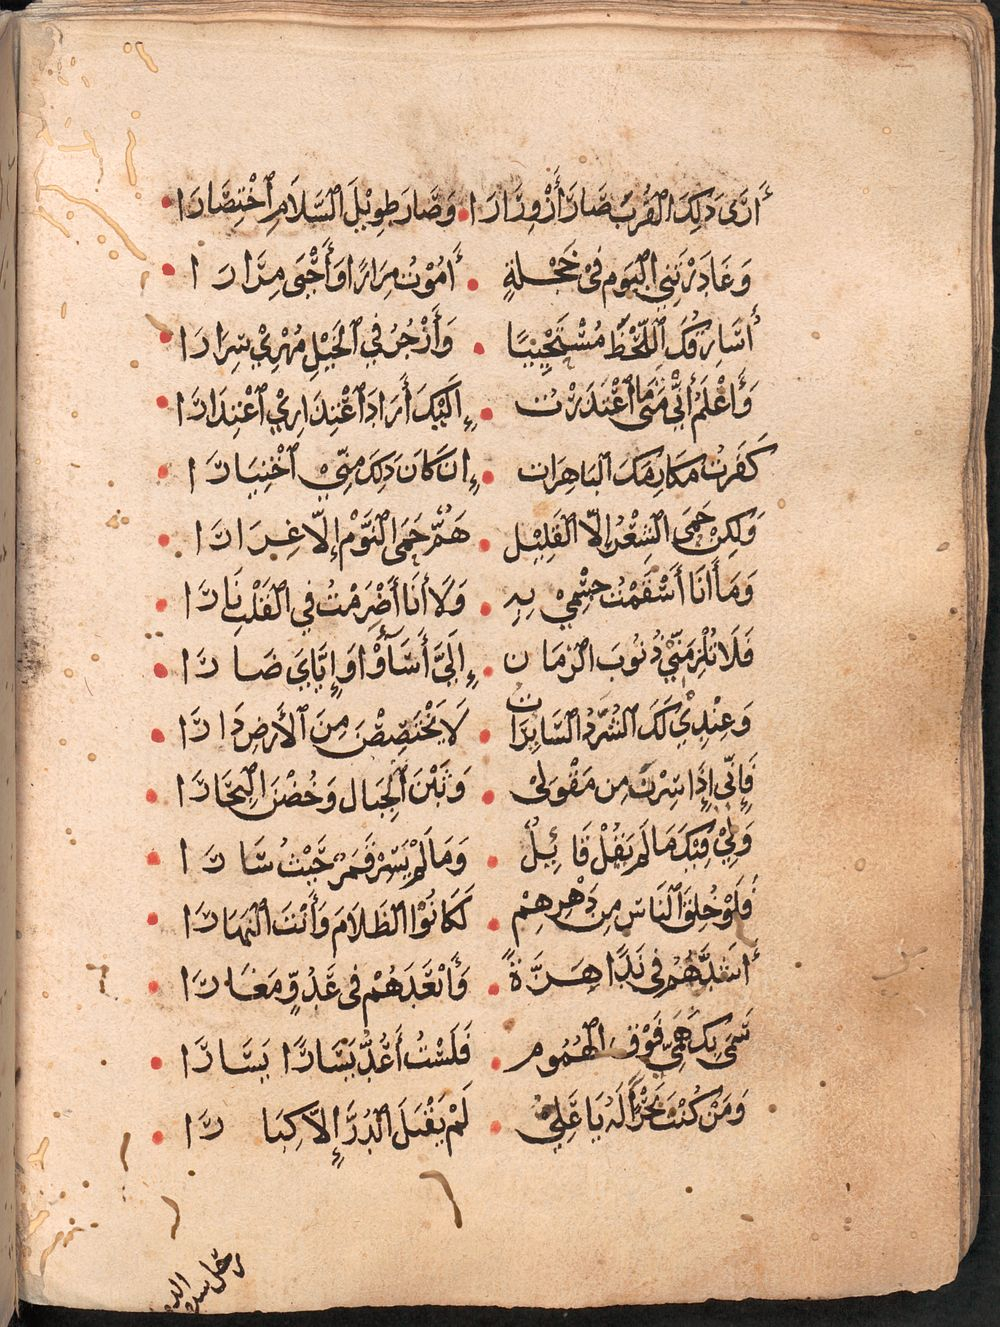 أَرَى ذَلِكَ القُرْبَ صَارَ أَزْوِرَارَا وَصَارَ طَوِيْلَ السَّلَامِ اخْتِصَارَا
وَغَادَرْتَنِي اليَوْمَ فِي خَجْلَةٍ أَمُوْتُ مِرَارًا وَأَحْيَى مِرَارَا
أُسَارِقُكَ اللَّحْظَ مُسْتَحْيِيًا وَأَزْجُرُ فِي الخَيْلِ مُهْرِيْ سِرَارَا
وَأَعْلَمُ أَنِّي مَتَى مَا اعْتَذَرْتُ إِلَيْكَ أَرَادَ اعْتِذَارِيْ اعْتِذَارَا
كَفَرْتُ مَكَارِمَكَ البَاهِرَاتِ إِنْ كَانَ ذَلِكَ مِنِّيْ اخْتِيَارَا
وَلَكِنْ حَمَى الشِّعْرَ إِلَّا القَلِيْلَ هَمٌّ حَمَى النَّوْمَ إِلَّا غِرَارَا
وَمَا أَنَا أَسْقَمْتُ جِسْمِيْ بِهِ وَلَا أَنَا أَضْرَمْتُ فِي القَلْبِ نَارَا
فَلَا تُلْزِمَنِّيْ ذُنُوْبَ الزَّمَانِ إِلَيَّ أَسَاءَ وَإِيَّايَ ضَارَا
وَعِنْدِيْ لَكَ الشُّرَّدُ السَّائِرَاتُ لَا يَخْتَصِصْنَ مِنَ الأَرْضِ دَارَا
فَإِنِّي إِذَا سِرْنَ مِنْ مَقْوَلِيْ وَثَبْنَ الجِبَالَ وَخُضْنَ البِحَارَا
وَلِيْ فِيْكَ مَا لَمْ يَقُلْ قَائِلٌ وَمَا لَمْ يَسِرْ قَمَرٌ حَيْثُ سَارَا
فَلَوْ خُلِقَ النَّاسُ مِنْ دَهْرِهِمْ لَكَانُوْا الظَّلَامَ وَأَنْتَ النَّهَارَا
أَشَدُّهُمْ فِي نَدًا هِزَّةً وَأَبْعَدُهُمْ فِي عَدُوٍّ مَغَارَا
سَمَى بِكَ هَمِّيَ فَوْقَ الهُمُوْمِ فَلَسْتُ أَعُدُّ يَسَارًا يَسَارَا
وَمَنْ كُنْتَ بَحْرًا لَهُ يَا عَلِيُّ لَمْ يَقْبَلِ الدُّرَّ إِلَّا كِبَارَا